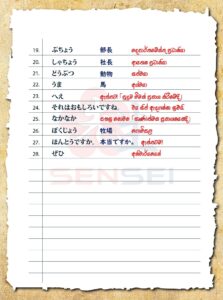 19. ぶちょう 部長 දෙපාර්තමේන්තු ප්‍රධානියා
20. しゃちょう 社長 ආයතන ප්‍රධානියා
21. どうぶつ 動物 සත්වයා
22. うま 馬 අශ්වයා
23. へえ
24. それはおもしろいですね。
25. なかなか
26. ぼくじょう 牧場 ගොවිපල
27. ほんとうですか。 本当ですか。 ඇත්තටම?
28. ぜひ අනිවාර්යයෙන්
SENSEI